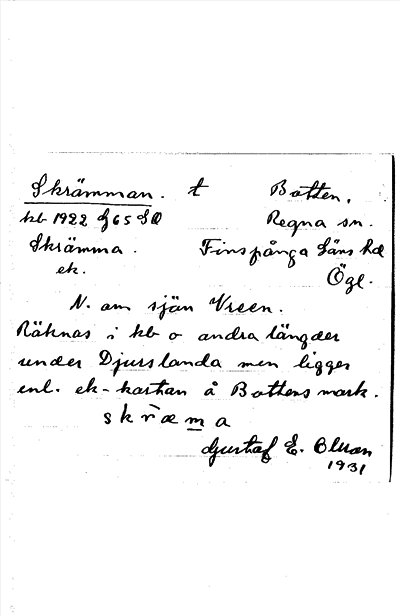 Skrämman. t Botten.
kb 1922 Regna sn.
Skrämma. Finspånga läns hd
ek. Ögl.
N. om sjön Vreen.
Räknas i kb o andra längder
under Djurslanda men ligger
enl. ek-kartan å Bottens mark.
skræma
Gustaf E.
1931